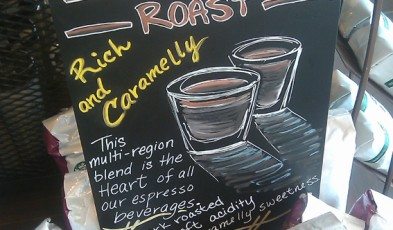 ROAST
Rich
and
Caramelly
This
multi-region
blend is the
Heart of all
our espresso
beverages.
roasted
acidity
sweetness